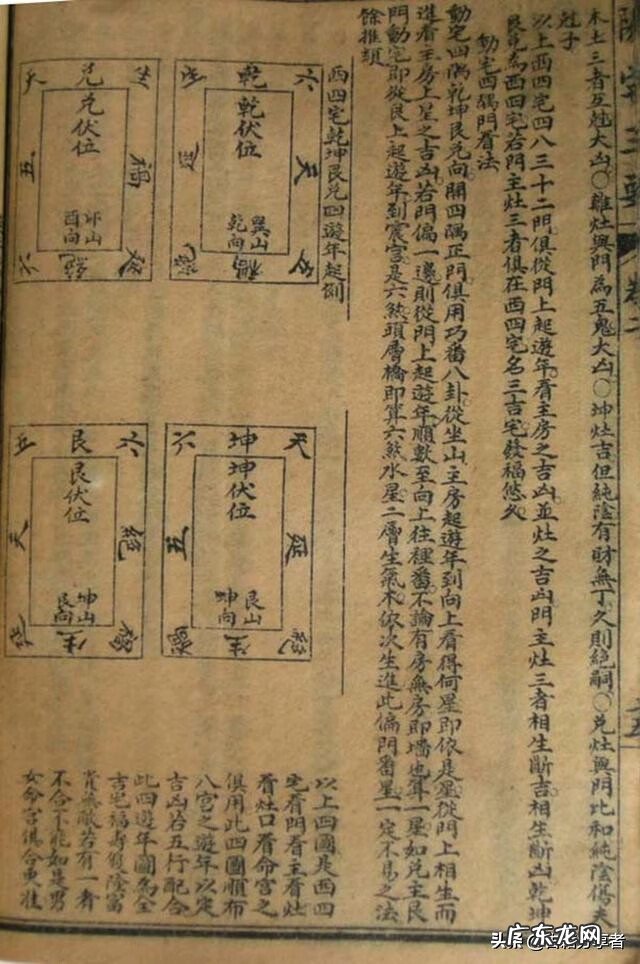 陽宅三要 卷二
木土三者互灶大凶〇離灶與門為五鬼大凶〇坤灶吉但純陰有財無丁久則絕嗣〇兌灶與門比和純陰傷夫
尅子
以上西四宅四八三十二門俱從門上起遊年看主房之吉凶並灶之吉凶門主灶三者相生斷吉相生斷凶乾坤
艮兌為西四宅若門主灶三者俱在西四宅名三吉宅發福悠久
動宅西隅門看法
動宅四隅乾坤艮兌向開四隅正門俱用巧番八卦從坐山主房起遊年到向上看得何星即依是星從門上相生而
進看主房上星之吉凶若門偏一邊則從門上起遊年順數至向上往裡番不論有房無房即墻也算一星如兌主艮
門動宅即從艮上起遊年到震宮是六煞頭層橋即算六煞水星二層生氣木依次生進此偏門番星一定不易之法
餘推類
西四宅乾坤艮兌四遊年起例
六 乾 五
天 延
生 禍 絕
乾伏位
巽山
乾向
生 兌 天
禍 五
延 絕 六
兌伏位
卯山
酉向
天 坤 六
延 五
絕 生 禍
坤伏位
艮山
坤向
六 艮 五
絕 天
禍 生 延
艮伏位
坤山
艮向
以上四圖是西四
宅看門看主看灶
看灶口看命宮之
俱用此四圖順布
八宮之遊年以定
吉凶若五行配合
此四遊年圖為全
吉宅福壽雙隆富
貴無敵若有一者
不合不能如是男
女命宮俱合更准
广东龙网
头条